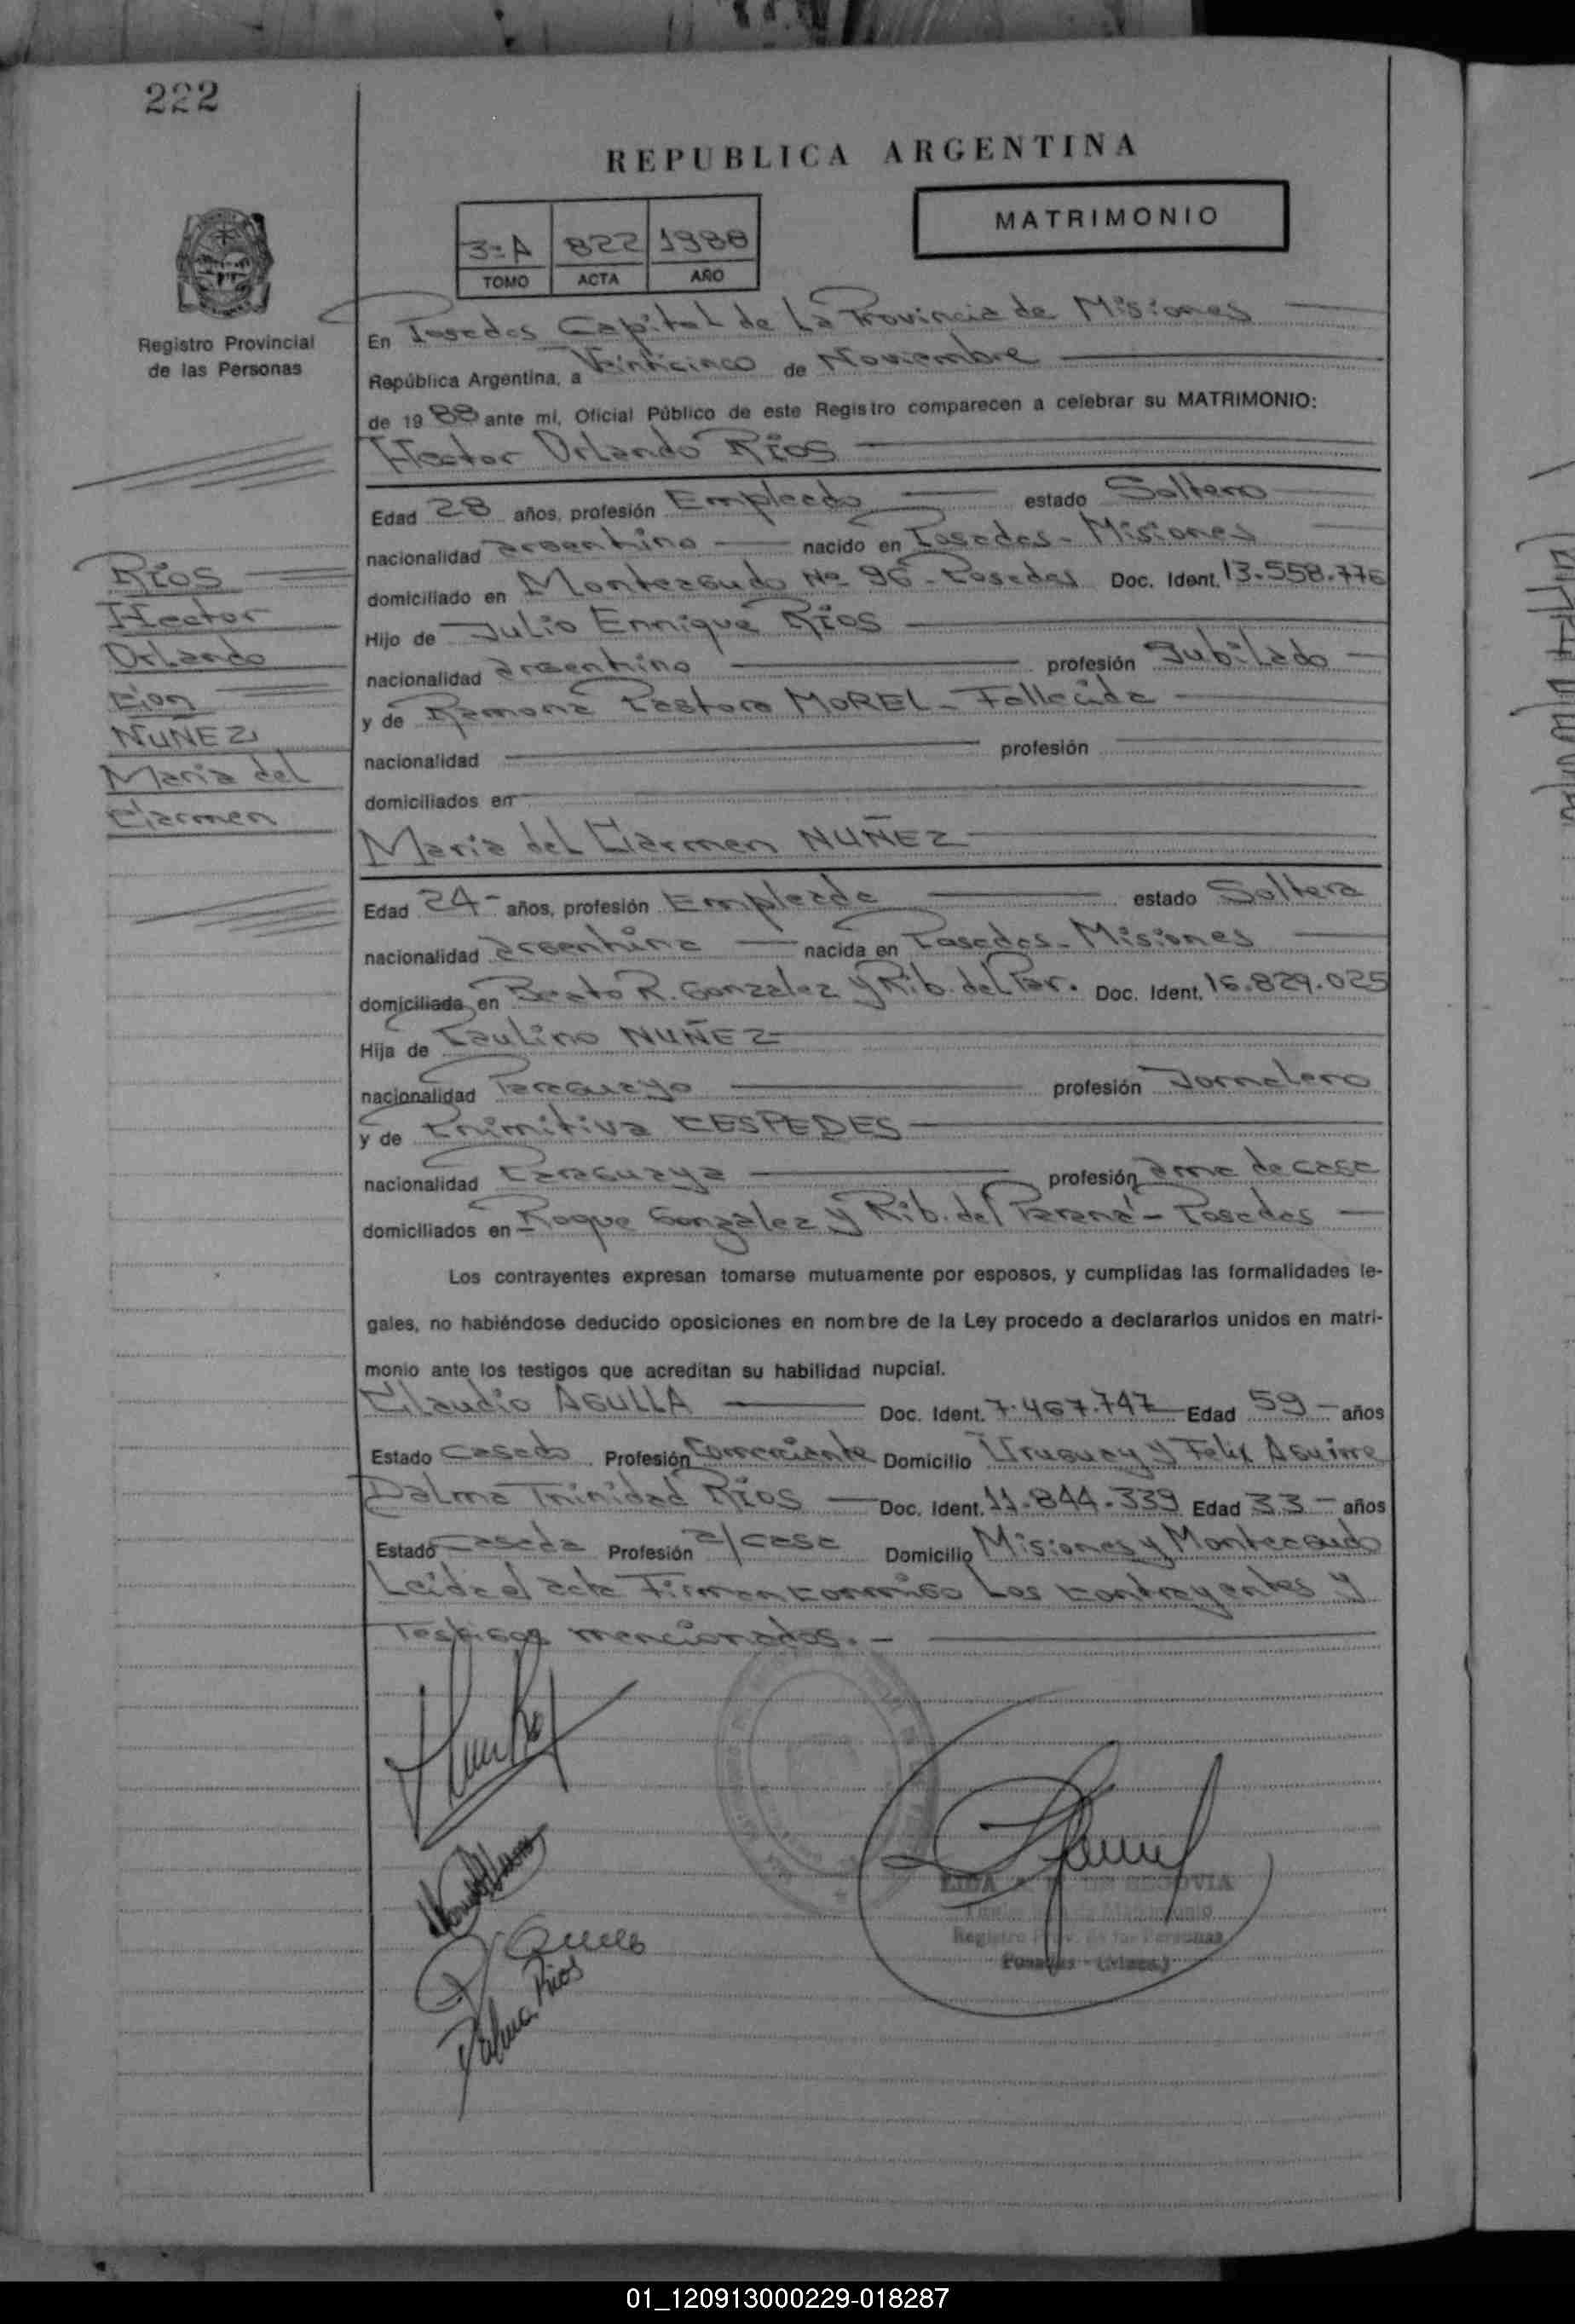 222
REPUBLICA ARGENTINA
MATRIMONIO
3=A 822 1988
TOMO ACTA AÑO
Registro Provincial
de las Personas
En Posadas Capital de La Provincia de Misiones
República Argentina, a Veinticinco de Noviembre
de 1988 ante mí, Oficial Público de este Registro comparecen a celebrar su MATRIMONIO:
Hector Orlando RIOS
Edad 28 años, profesión Empleado estado Soltero
nacionalidad argentino nacido en Posadas - Misiones
domiciliado en Monteagudo Nº 96 - Posadas Doc. Ident. 13.558.776
Hijo de Julio Enrique RIOS
nacionalidad argentino profesión Jubilado
y de Ramona Pastora MOREL - Fallecida
nacionalidad profesión
domiciliados en
RIOS
Hector
Orlando
Con
NUÑEZ
Maria del
Carmen
Maria del Carmen NUÑEZ
Edad 24- años, profesión Empleada estado Soltera
nacionalidad argentina nacida en Posadas - Misiones
domiciliada en Beato R. Gonzalez y Rib. del Par. Doc. Ident. 16.829.025
Hija de Paulino NUÑEZ
nacionalidad Paraguayo profesión Jornalero
y de Primitiva CESPEDES
nacionalidad Paraguaya profesión ama de casa
domiciliados en Roque Gonzalez y Rib. del Paraná - Posadas
Los contrayentes expresan tomarse mutuamente por esposos, y cumplidas las formalidades le-
gales, no habiéndose deducido oposiciones en nombre de la Ley procedo a declararlos unidos en matri-
monio ante los testigos que acreditan su habilidad nupcial.
Claudio AGULLA Doc. Ident. 7.467.747 Edad 59- años
Estado Casado Profesión Comerciante Domicilio Uruguay y Felix Aguirre
Dalma Trinidad RIOS Doc. Ident. 11.844.339 Edad 33- años
Estado Casada Profesión a/casa Domicilio Misiones y Monteagudo
Leida el acta Firman conmigo Los contrayentes y
Testigos mencionados.-
Dalma Rios
DE SEGOVIA
Registro Prov. de las Personas
Posadas - (Mnes.)
01_120913000229-018287